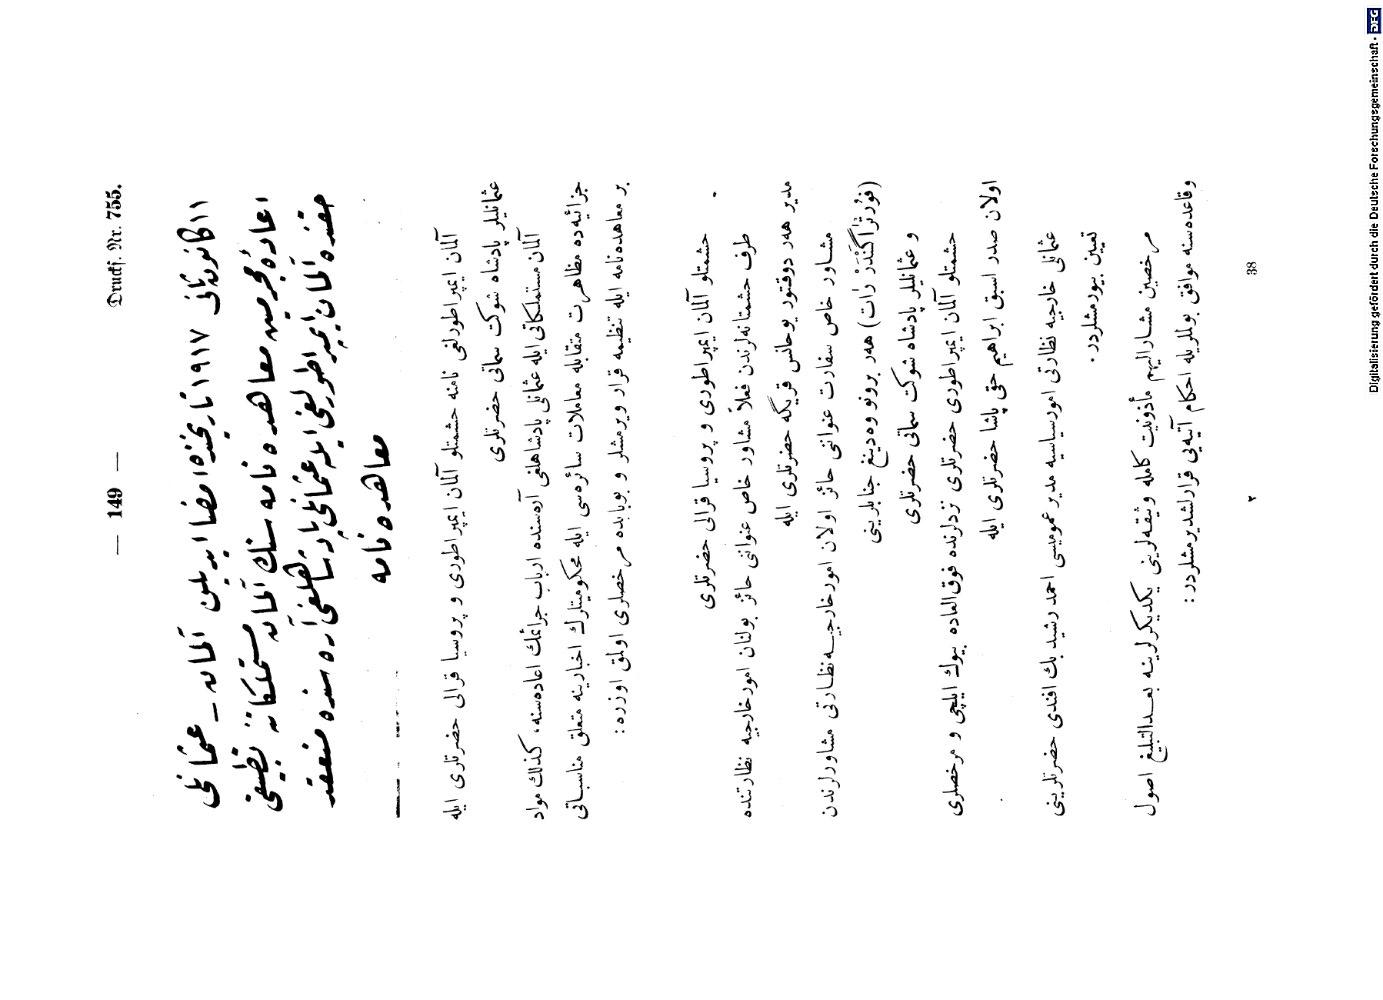 — 149 —
Druckf. Nr. 755.
١١ كانون ثانی ١٩١٧ تاريخنده امضا ايديلن آلمان ـ عثمانلی
اعادهٔ مجرمين معاهده نامه سنك آلمان مستملكاته تطبيقی
حقنده آلمان ايمپراطورلغی ايله عثمانلی پادشاهلغی آره سنده منعقد
معاهده نامه
آلمان ايمپراطورلغی نامنه حشمتلو آلمان ايمپراطوری و پروسيا قرالی حضرتلری ايله
عثمانليلر پادشاه شوكت سماتی حضرتلری
آلمان مستملكاتی ايله عثمانلی پادشاهلغی آره‌سنده ارباب جرائمك اعاده‌سنه، كذلك مواد
جزائيه‌ده مظاهرت متقابله معاملات سائره‌سی ايله محكوميتلرك اخبارينه متعلق مناسباتی
بر معاهده‌نامه ايله تنظيمه قرار ويرمشلر و بوبابده مرخصلری اولمق اوزره :
حشمتلو آلمان ايمپراطوری و پروسيا قرالی حضرتلری
طرف حشمتانه‌لرندن فعلاً مشاور خاص عنوانی حائز بولنان امورخارجيه نظارتنده
مدير هەر دوقتور يوحانس قريگه حضرتلری ايله
مشاور خاص سفارت عنوانی حائز اولان امورخارجيه نظارتی مشاورلرندن
(فورتراگندر رات) هەر برونو وەدينغ جنابلرينی
و عثمانليلر پادشاه شوكت سماتی حضرتلری
حشمتلو آلمان ايمپراطوری حضرتلری نزدلرنده فوق‌العاده بيوك ايلچی و مرخصلری
اولان صدر اسبق ابراهيم حقی پاشا حضرتلری ايله
عثمانلی خارجيه نظارتی امورسياسيه مدير عموميسی احمد رشيد بك افندی حضرتلرينی
تعيين بيورمشلردر.
مرخصين مشاراليهم مأذونيت كامله وثيقه‌لرينی يكديگرلرينه بعدالتبليغ اصول
وقاعده‌سنه موافق بوللريله احكام آتيه‌يی قرارلشديرمشلردر :
٢
38
Digitalisierung gefördert durch die Deutsche Forschungsgemeinschaft - DFG